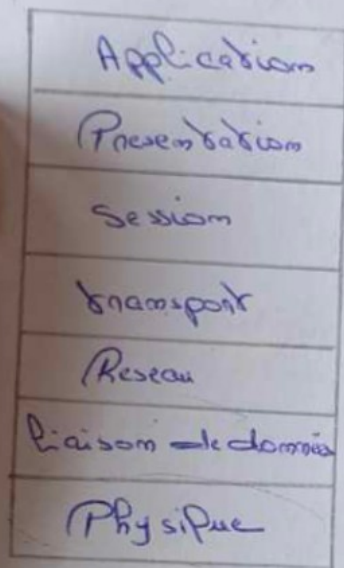 Application
Presentation
Session
transport
Reseau
liaison de données
Physique